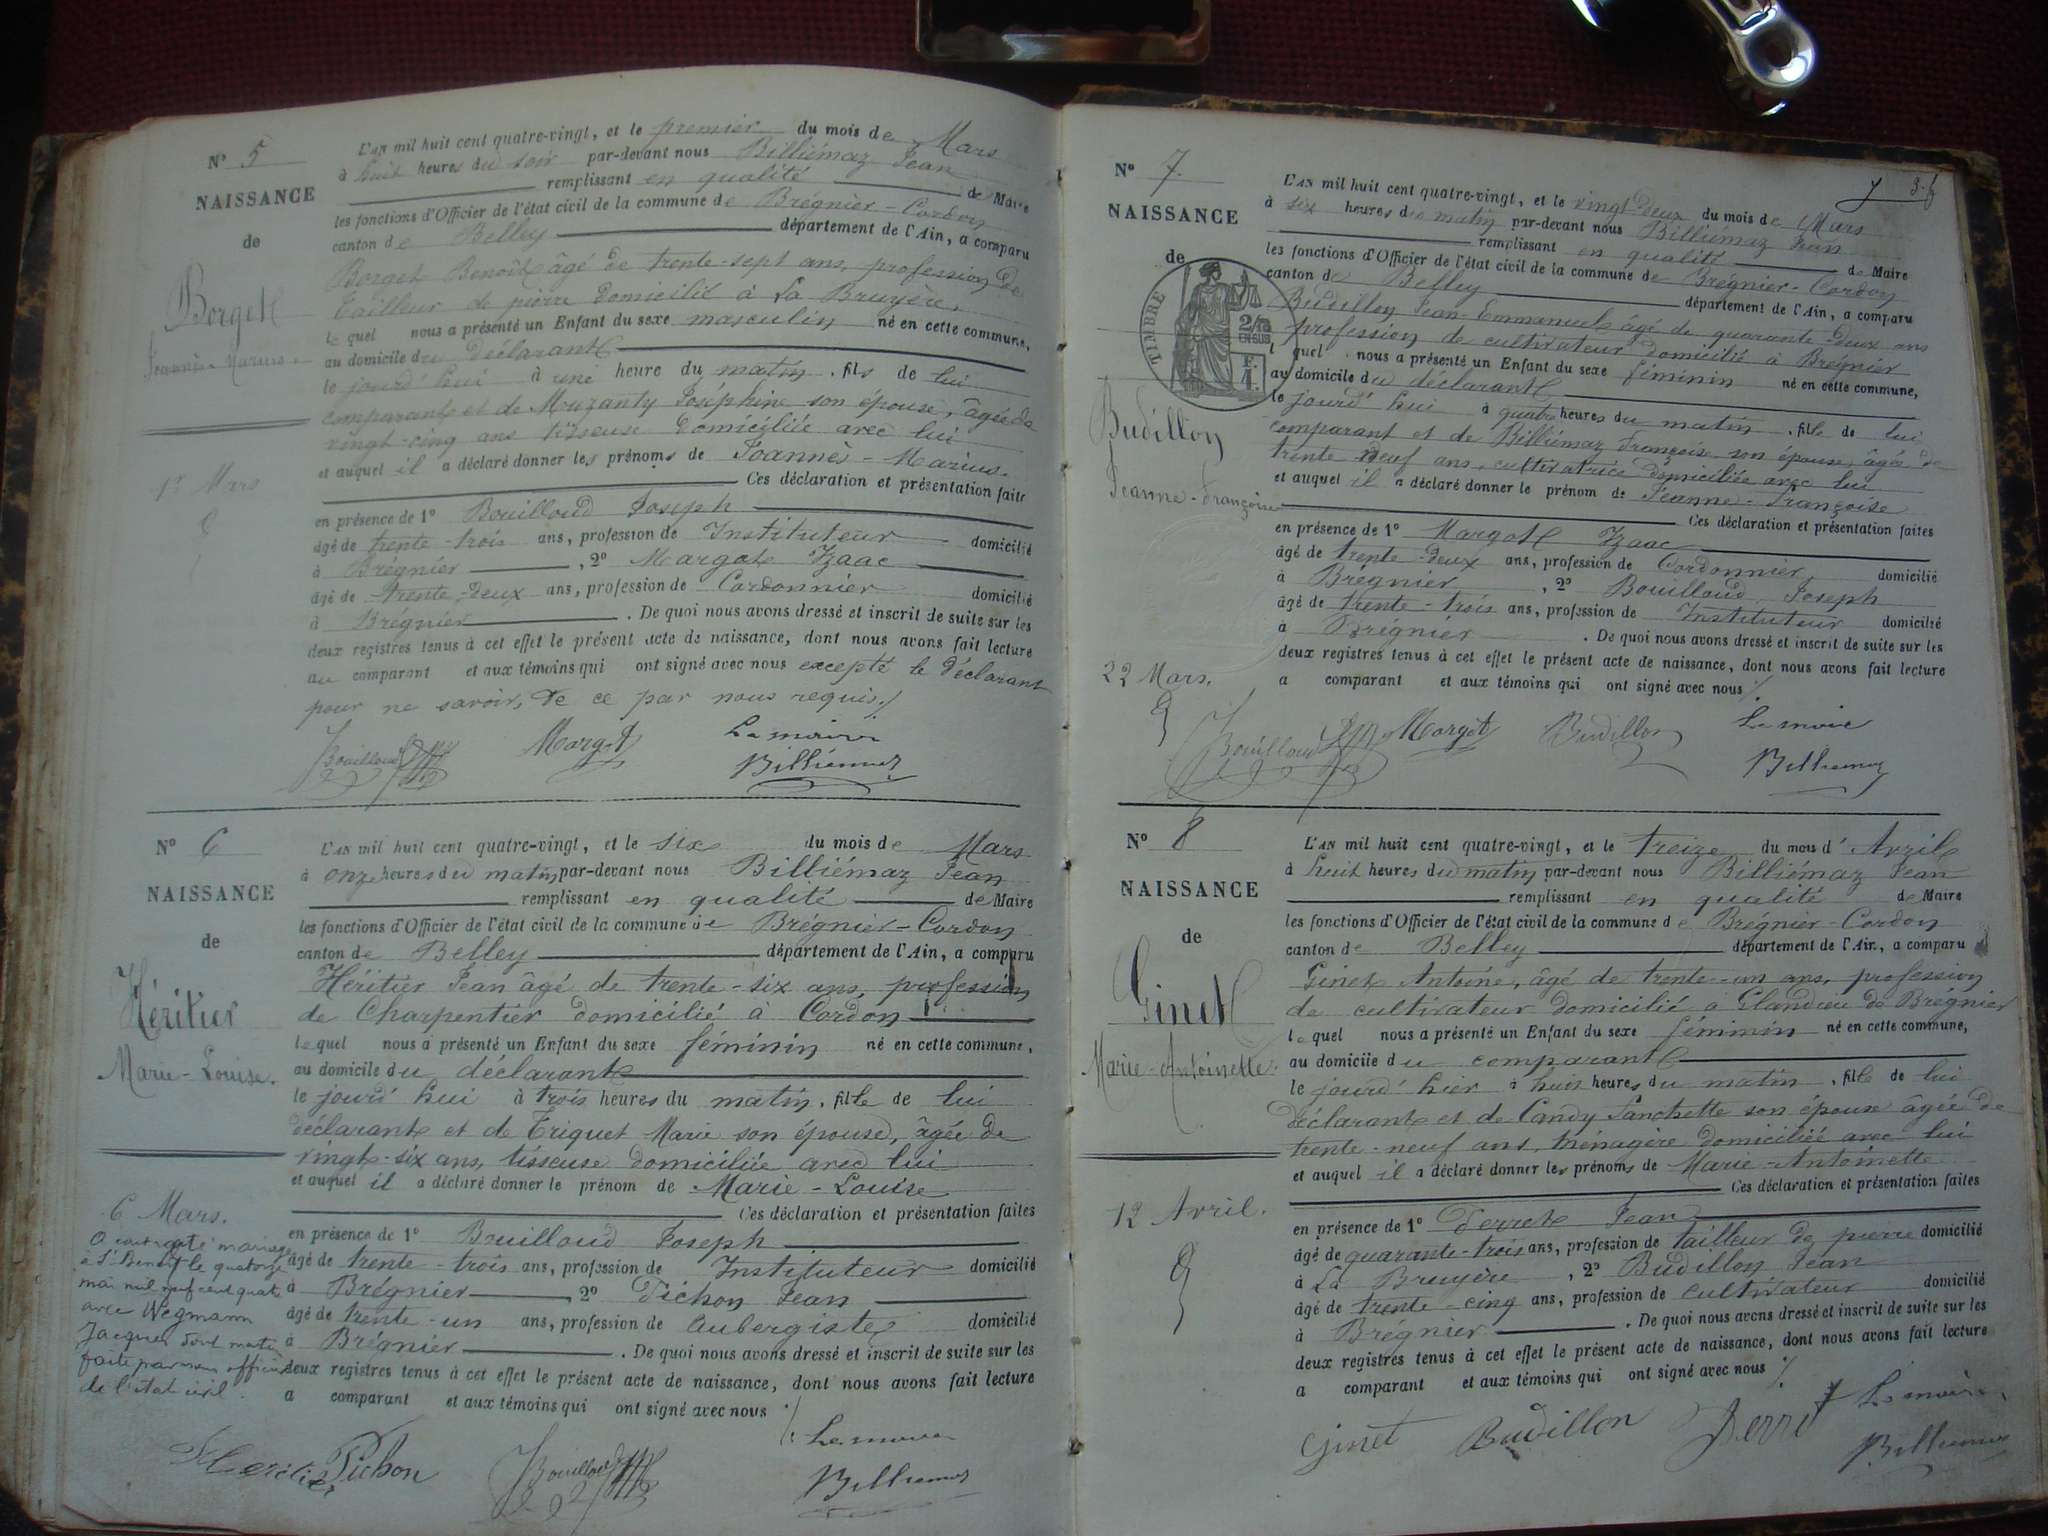 N° 5
NAISSANCE
de
Borget
Joannès-Marius
1er Mars
L'AN mil huit cent quatre-vingt, et le premier du mois de Mars
à huit heures du soir par-devant nous Billiémaz Jean
remplissant en qualité de Maire
les fonctions d'Officier de l'état civil de la commune de Brégnier-Cordon
canton de Belley département de l'Ain, a comparu
Borget Benoit âgé de trente-sept ans, profession de
tailleur de pierre domicilié à La Bruyère,
lequel nous a présenté un Enfant du sexe masculin né en cette commune,
au domicile du déclarant
le jourd'hui à une heure du matin, fils de lui
comparant et de Muzanty Joséphine son épouse, âgée de
vingt-cinq ans tisseuse domiciliée avec lui
et auquel il a déclaré donner les prénoms de Joannès-Marius.
Ces déclaration et présentation faites
en présence de 1° Bouilloud Joseph
âgé de trente-trois ans, profession de Instituteur domicilié
à Brégnier, 2° Margot Izaac
âgé de trente-deux ans, profession de Cordonnier domicilié
à Brégnier. De quoi nous avons dressé et inscrit de suite sur les
deux registres tenus à cet effet le présent acte de naissance, dont nous avons fait lecture
au comparant et aux témoins qui ont signé avec nous excepté le déclarant
pour ne savoir, de ce par nous requis./
Bouilloud Margot Le maire
Billiémaz
N° 6
NAISSANCE
de
Héritier
Marie-Louise.
6 Mars.
A contracté mariage
à St Benoit le quatorze
mai mil neuf cent quatre
avec Wegmann
Jacques dont mention
faite par nous officier
de l'état civil.
L'AN mil huit cent quatre-vingt, et le six du mois de Mars
à onze heures du matin par-devant nous Billiémaz Jean
remplissant en qualité de Maire
les fonctions d'Officier de l'état civil de la commune de Brégnier-Cordon
canton de Belley département de l'Ain, a comparu
Héritier Jean âgé de trente-six ans, profession
de Charpentier domicilié à Cordon
lequel nous a présenté un Enfant du sexe féminin né en cette commune,
au domicile du déclarant
le jourd'hui à trois heures du matin, fille de lui
déclarant et de Triquet Marie son épouse, âgée de
vingt-six ans, tisseuse domiciliée avec lui
et auquel il a déclaré donner le prénom de Marie-Louise
Ces déclaration et présentation faites
en présence de 1° Bouilloud Joseph
âgé de trente-trois ans, profession de Instituteur domicilié
à Brégnier, 2° Pichon Jean
âgé de trente-un ans, profession de Aubergiste domicilié
à Brégnier. De quoi nous avons dressé et inscrit de suite sur les
deux registres tenus à cet effet le présent acte de naissance, dont nous avons fait lecture
a comparant et aux témoins qui ont signé avec nous
Héritier Pichon Bouilloud Le maire
Billiémaz
N° 7.
NAISSANCE
de
TIMBRE
2/10
EN SUS
F.
Budillon
Jeanne-Françoise
22 Mars.
L'AN mil huit cent quatre-vingt, et le vingt-deux du mois de Mars
à six heures du matin par-devant nous Billiémaz Jean
remplissant en qualité de Maire
les fonctions d'Officier de l'état civil de la commune de Brégnier-Cordon
canton de Belley département de l'Ain, a comparu
Budillon Jean-Emmanuel âgé de quarante-deux ans
profession de cultivateur domicilié à Brégnier
lequel nous a présenté un Enfant du sexe féminin né en cette commune,
au domicile du déclarant
le jourd'hui à quatre heures du matin, fille de lui
comparant et de Billiémaz Françoise son épouse, âgée de
trente neuf ans, cultivatrice domiciliée avec lui
et auquel il a déclaré donner le prénom de Jeanne-Françoise
Ces déclaration et présentation faites
en présence de 1° Margot Izaac
âgé de trente-deux ans, profession de Cordonnier domicilié
à Brégnier, 2° Bouilloud Joseph
âgé de trente-trois ans, profession de Instituteur domicilié
à Brégnier. De quoi nous avons dressé et inscrit de suite sur les
deux registres tenus à cet effet le présent acte de naissance, dont nous avons fait lecture
a comparant et aux témoins qui ont signé avec nous
Bouilloud Margot Budillon Le maire
Billiémaz
N° 8
NAISSANCE
de
Ginet
Marie-Antoinette.
12 Avril.
L'AN mil huit cent quatre-vingt, et le treize du mois d'Avril
à huit heures du matin par-devant nous Billiémaz Jean
remplissant en qualité de Maire
les fonctions d'Officier de l'état civil de la commune de Brégnier-Cordon
canton de Belley département de l'Ain, a comparu
Ginet Antoine, âgé de trente-un ans, profession
de cultivateur domicilié à Glandieu de Brégnier
lequel nous a présenté un Enfant du sexe féminin né en cette commune,
au domicile du comparant
le jourd'hier à huit heures du matin, fille de lui
déclarant et de Candy Fanchette son épouse âgée de
trente-neuf ans, ménagère domiciliée avec lui
et auquel il a déclaré donner les prénoms de Marie-Antoinette
Ces déclaration et présentation faites
en présence de 1° Derret Jean
âgé de quarante-trois ans, profession de tailleur de pierre domicilié
à La Bruyère, 2° Budillon Jean
âgé de trente-cinq ans, profession de cultivateur domicilié
à Brégnier. De quoi nous avons dressé et inscrit de suite sur les
deux registres tenus à cet effet le présent acte de naissance, dont nous avons fait lecture
a comparant et aux témoins qui ont signé avec nous
Ginet Budillon Derret Le maire
Billiémaz